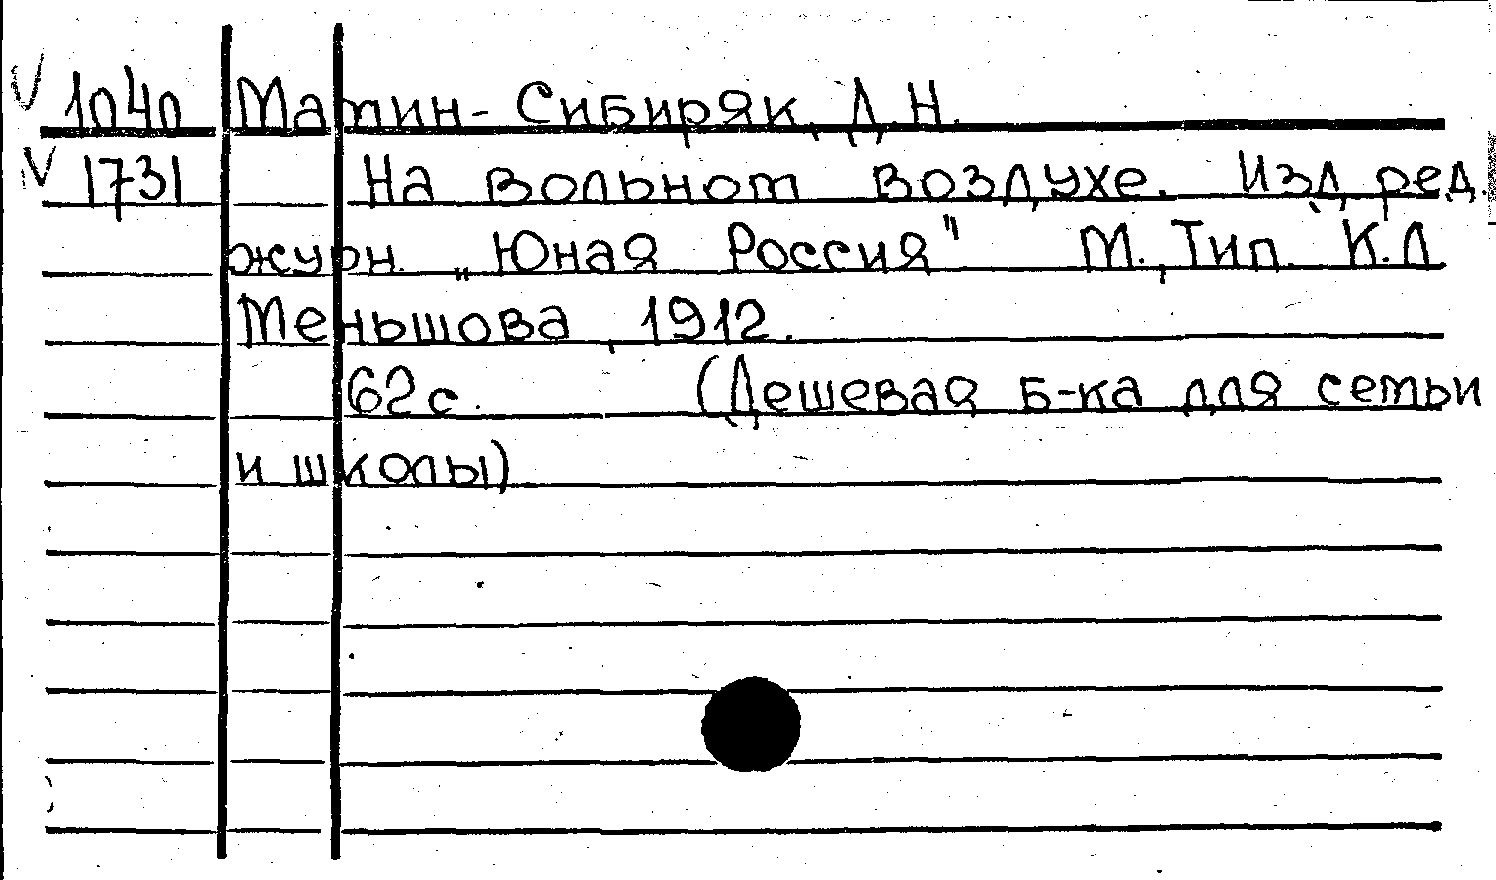 V 1040 Мамин-Сибиряк, Д.Н.
V 1731 На вольном воздухе. Изд. ред.
журн. „Юная Россия" М., Тип. К.Л.
Меньшова, 1912.
62 с. (Дешевая б-ка для семьи
и школы)